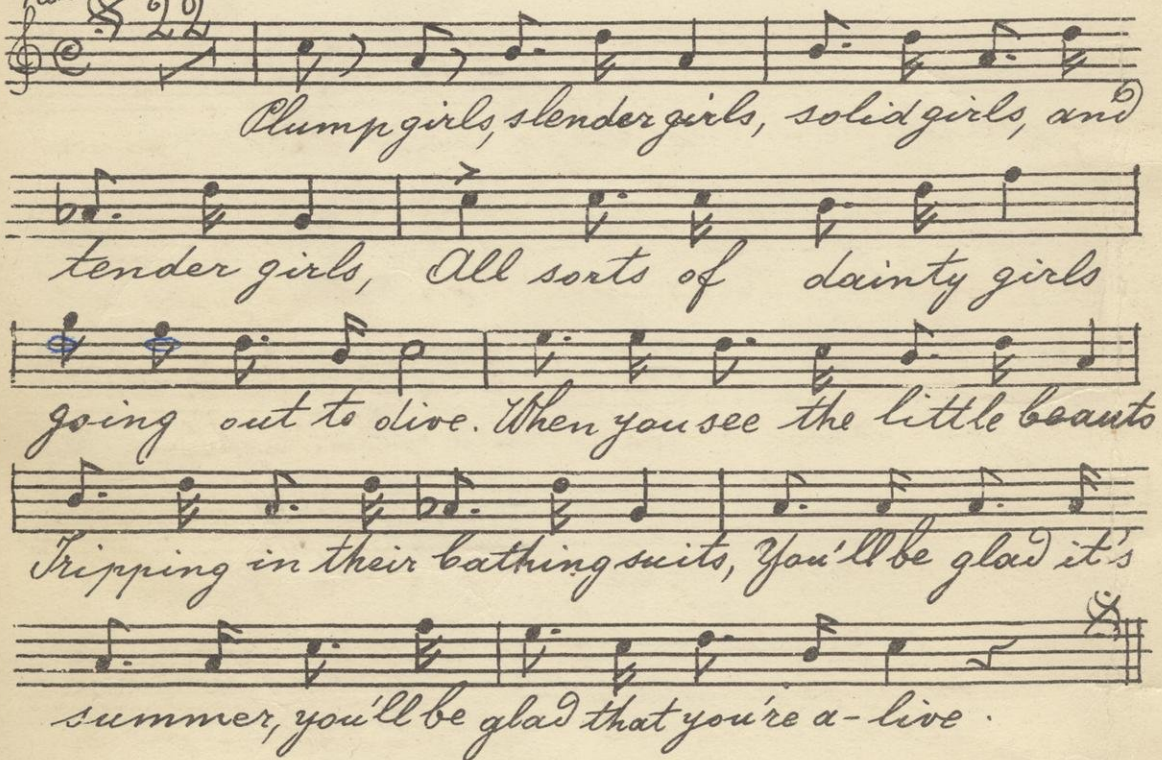 22
Plump girls, slender girls, solid girls, and
tender girls, All sorts of dainty girls
going out to dive. When you see the little beauts
Tripping in their bathing suits, You'll be glad it's
summer, you'll be glad that you're a-live.